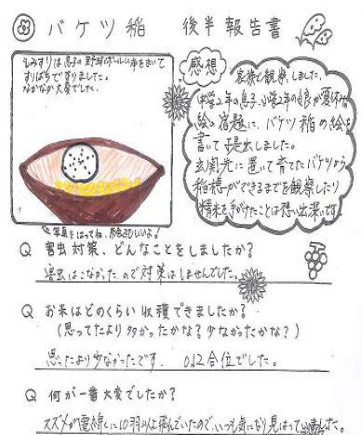 バケツ稲 後半報告書
もみすりは息子の野球ボールい中をまいて
すりばちですりました。
なかなか大変でした。
感想
家族で観察しました。
中学2年の息子、小学2年の娘が夏休み
絵の宿題に、バケツ稲の絵を
書いて提出しました。
玄関先に置いて育てたバケツから
稲穂ができるまでを観察したり
精米を手がけたことは想い出深いです。
写真をはってね、絵でもいいよ。
Q 害虫対策、どんなことをしましたか?
害虫はこなかったので対策はしませんでした。
Q お米はどのくらい収穫できましたか?
(思ってたより多かったかな?少なかったかな?)
思ったより少なかったです。 0.2合位でした。
Q 何が一番大変でしたか?
スズメが電線に10羽以上飛んでいたので、いつも気になり見はっていました。